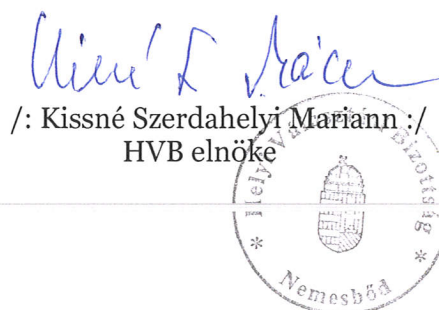 /: Kissné Szerdahelyi Mariann :/
HVB elnöke
Helyi Választási Bizottság
* Nemesbőd *